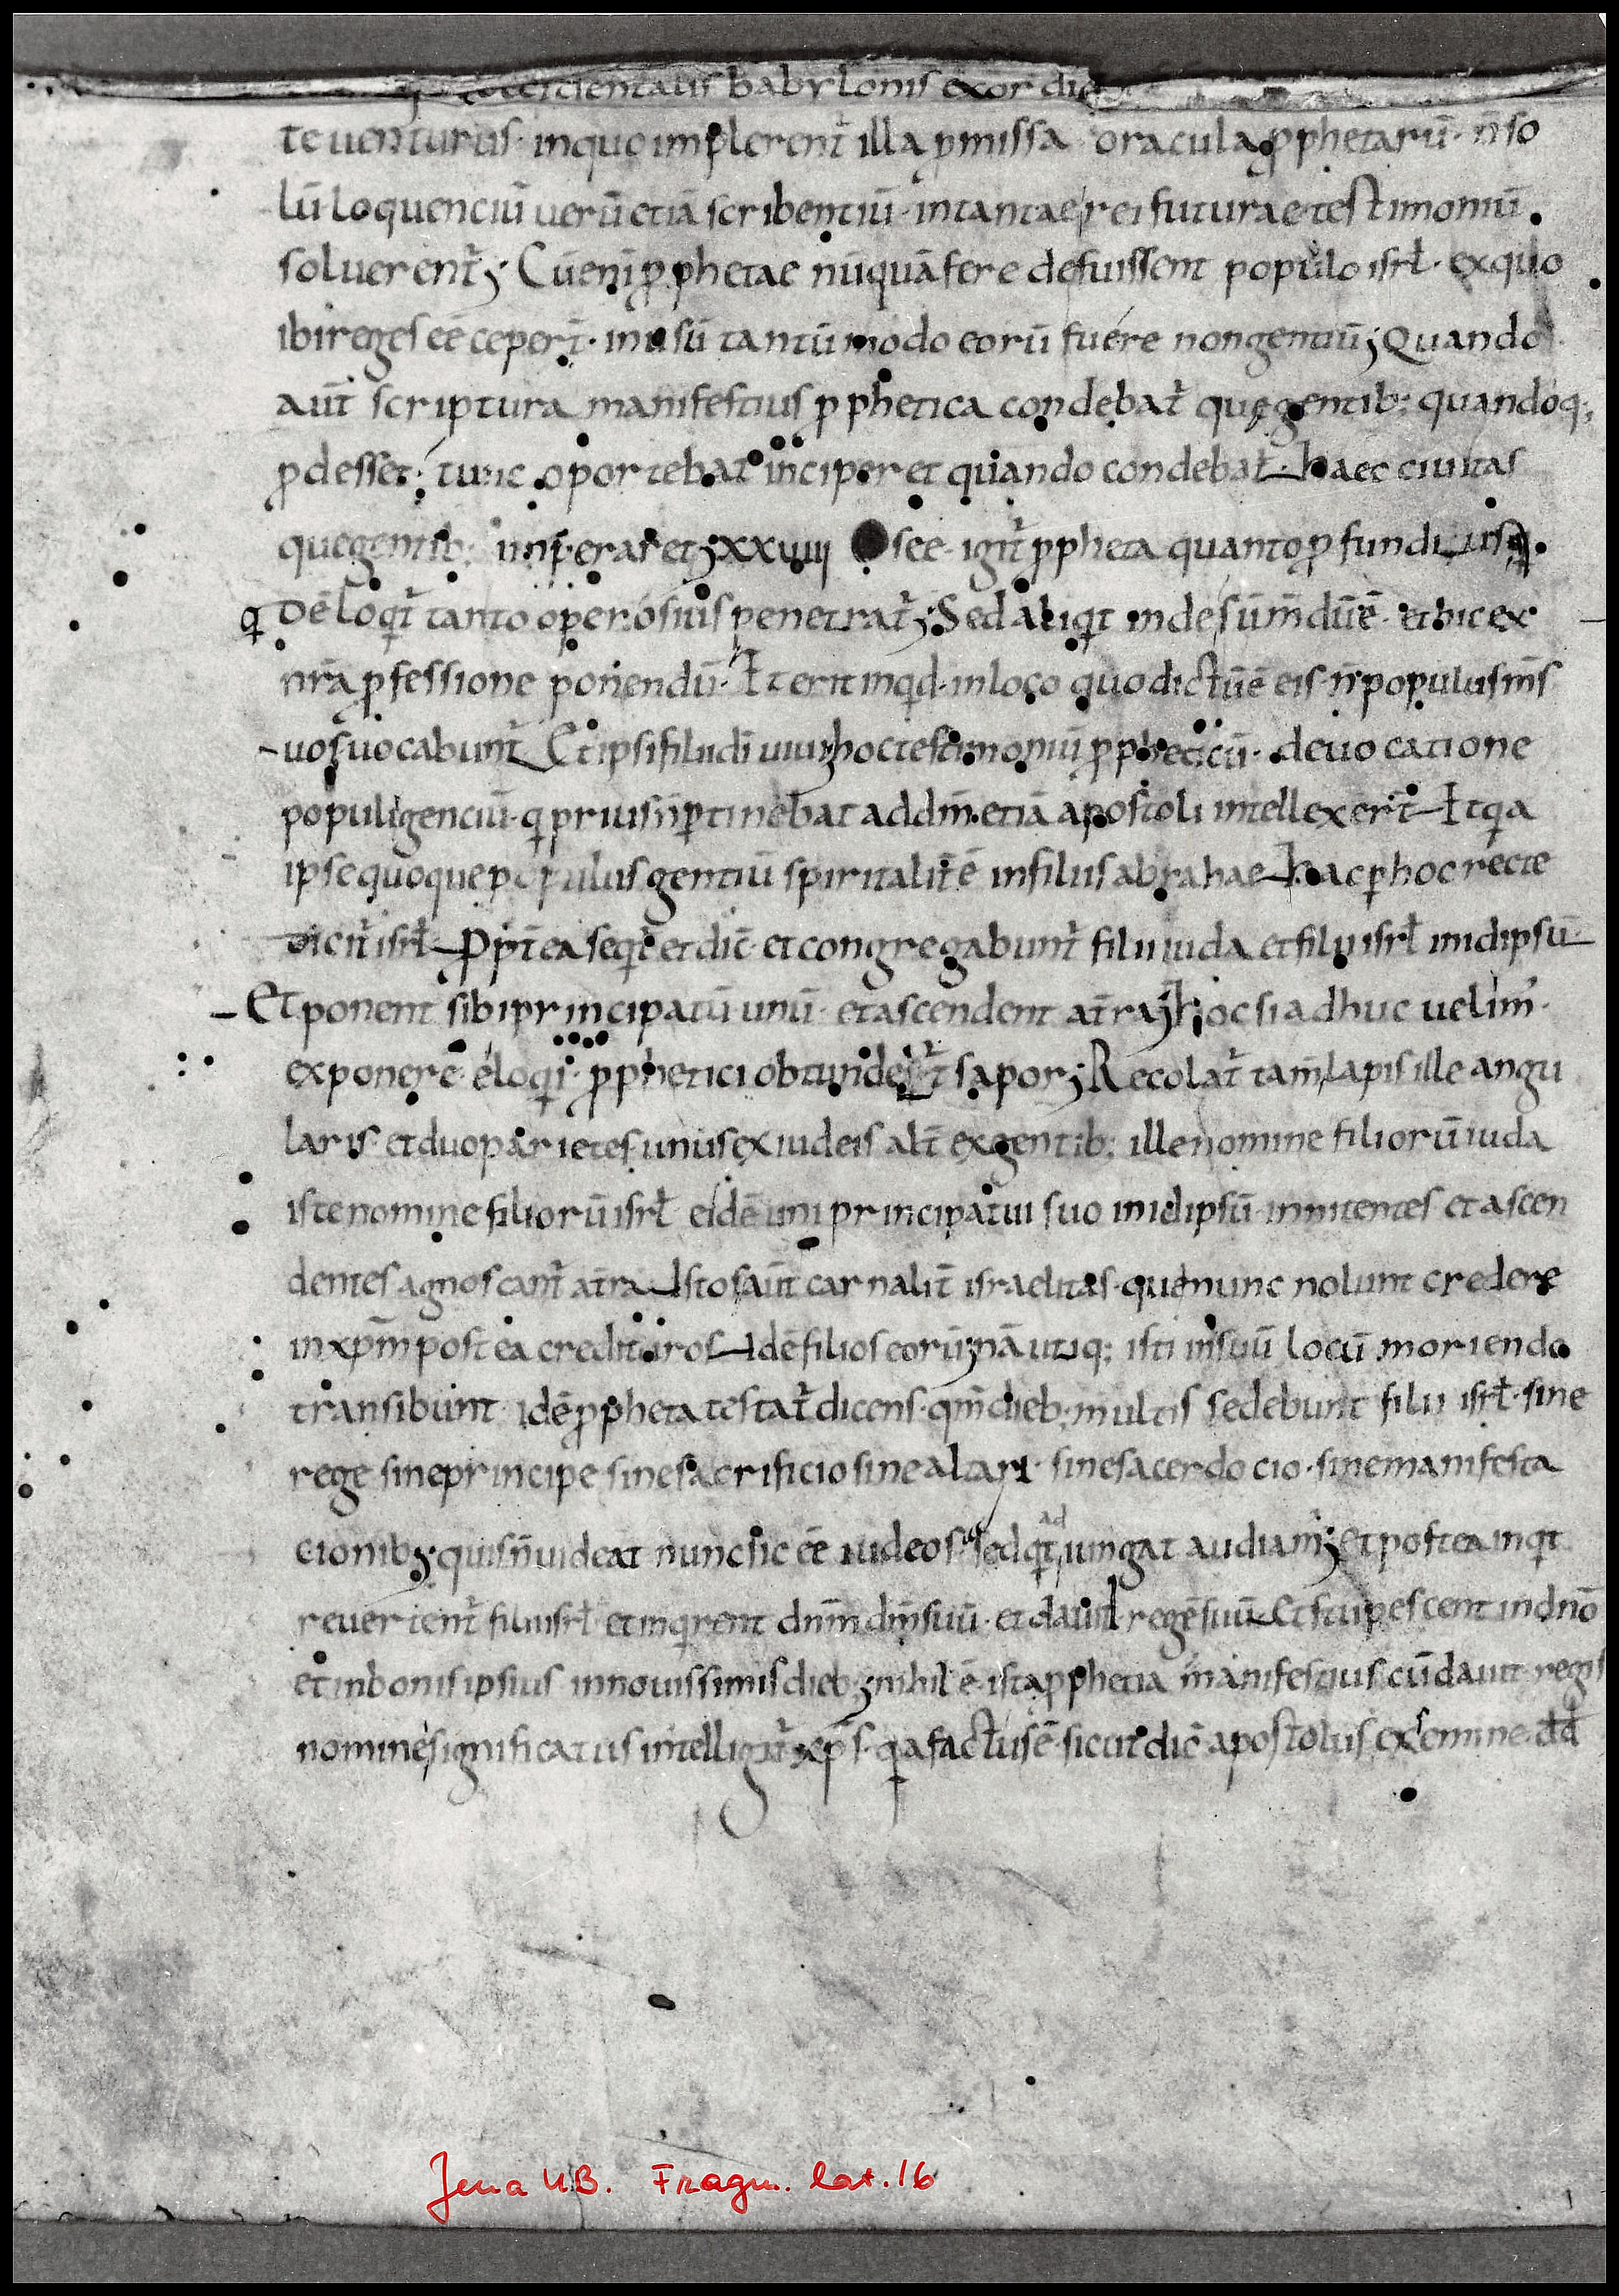 occidentalis babylonis exordio
te uenturus · inquo implerent̄ illa p̄missa oracula ꝓphetarū · n̄ so
lū loquenciū uerū etiā scribentiū · in tantae rei futurae testimoniū ·
soluerent̄; Cū enī ꝓphetae nūquā fere defuissent populo isrł · ex quo
ibi reges eē ceper̄t · in usū tantū modo eorū fuere non gentiū; Quando
aut̄ scriptura manifestius ꝓphetica condebat̄ quę gentib; quandoq;
ꝓdesset · tunc oportebat inciperet quando condebat̄ haec ciuitas
que gentib; imperaret; xxuiiii Osee igit̄ ꝓpheta quanto ꝓfundius q
q dē loqit̄ tanto operosius penetrat̄; Sed aliqit inde sūm̄dū ē · et hic ex
nr̄a ꝓfessione ponendū · Et erit inqid · in loco quo dictū ē eis n̄ populus m̄s
uos uocabunt̄ Et ipsi filii dī uiui; hoc testimoniū ꝓpheticū · de uocatione
populi genciū · qi prius n̄ ꝑtinebat ad dm̄ · etiā apostoli intellexer̄t Et qia
ipse quoque populus gentiū spiritalit̄ ē in filiis abrahae hac ꝑ hoc recte
dicit̄ isrł Ꝓpt̄ea seqit̄ et dic̄ · et congregabunt̄ filii iuda et filii isrł in idipsū
Et ponent sibi principatū unū · et ascendent a t̄ra; hoc si adhuc uelim̄ ·
exponere eloqii · ꝓphetici obtundet̄ sapor; Recolat̄ tam̄ lapis ille angu
laris · et duo parietes · unus ex iudeis alt̄ ex gentib; ille nomine filiorū iuda
iste nomine filiorū isrł eidē uni principatui suo in idipsū innitentes et ascen
dentes agnoscant̄ a t̄ra Istos aut̄ carnalit̄ israelitas · qui nunc nolunt credere
in xpm̄ postea credituros Idē filios eorū; nā utiq; isti in suū locū moriendo
transibunt idē ꝓpheta testat̄ dicens · qm̄ dieb; multis sedebunt filii isrł · sine
rege sine principe sine sacrificio sine altari · sine sacerdocio · sine manifesta
cionib; quis n̄ uideat nunc sic eē iudeos sed qit adiungat audiam̄; Et postea inqit
reuertent̄ filii isrł et inqirent dnm̄ dm̄ suū · et dauid regē suū Et stupescent in dnō
et in bonis ipsius in nouissimis dieb; nihil ē · ista ꝓphetia manifestius cū dauit regis
nomine significatus intelligit̄ xps̄ · qia factus ē sicut dic̄ apostolus ex semine dd
Jena UB. Fragm. lat. 16